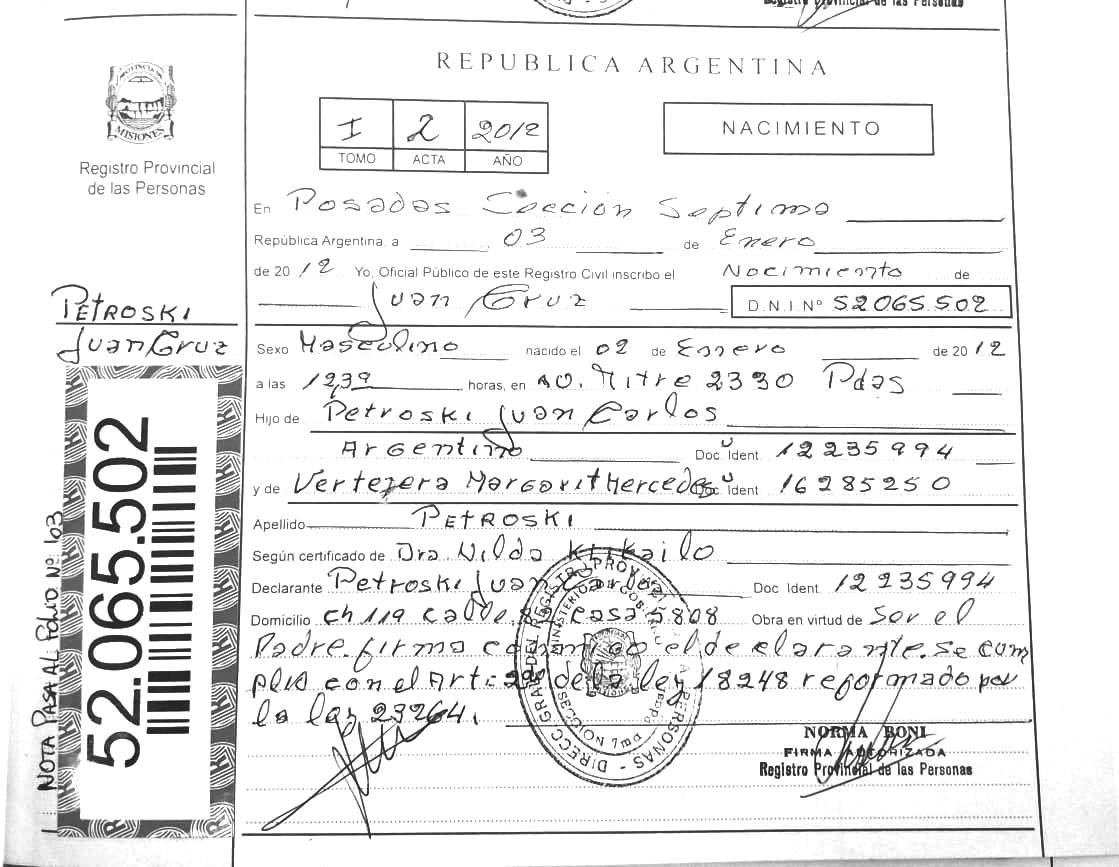 Registro Provincial de las Personas
REPUBLICA ARGENTINA
PROVINCIA
MISIONES
Registro Provincial
de las Personas
I 2 2012
TOMO ACTA AÑO
NACIMIENTO
En Posadas Sección Septima
República Argentina, a 03 de Enero
de 2012 Yo, Oficial Público de este Registro Civil inscribo el Nacimiento de
Juan Cruz D.N.I Nº 52065.502
PETROSKI
Juan Cruz
Sexo Masculino nacido el 02 de Enero de 2012
a las 12,39 horas, en AV. Mitre 2330 Pdas
Hijo de Petroski Juan Carlos
Argentino Doc. Ident. 12235994
y de Vertejera Margarit Mercedes Doc. Ident 16285250
Apellido PETROSKI
Según certificado de Dra Nilda
Declarante Petroski Juan Carlos Doc Ident. 12235994
Domicilio ch 119 Calle casa 5808 Obra en virtud de Ser el
Padre. firma conmigo el declarante. se cum
plio con el Art: 2º de la ley 18248 reformado por
la ley 23264.
NORMA BONI
FIRMA AUTORIZADA
Registro Provincial de las Personas
52.065.502
NOTA PASA AL FOLIO Nº 103